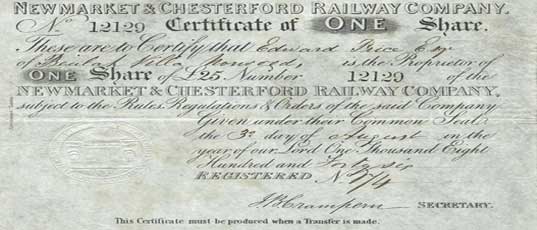 NEWMARKET & CHESTERFORD RAILWAY COMPANY.
No. 12129 Certificate of ONE Share.
These are to Certify that Edward Price Esqr
of Villa Norwood, is the Proprietor of
ONE Share of £25 Number 12129 of the
NEWMARKET & CHESTERFORD RAILWAY COMPANY,
subject to the Rules, Regulations & Orders of the said Company
Given under their Common Seal
the 3d day of August in the
year of our Lord One Thousand Eight
Hundred and Forty six
REGISTERED
SECRETARY.
This Certificate must be produced when a Transfer is made.